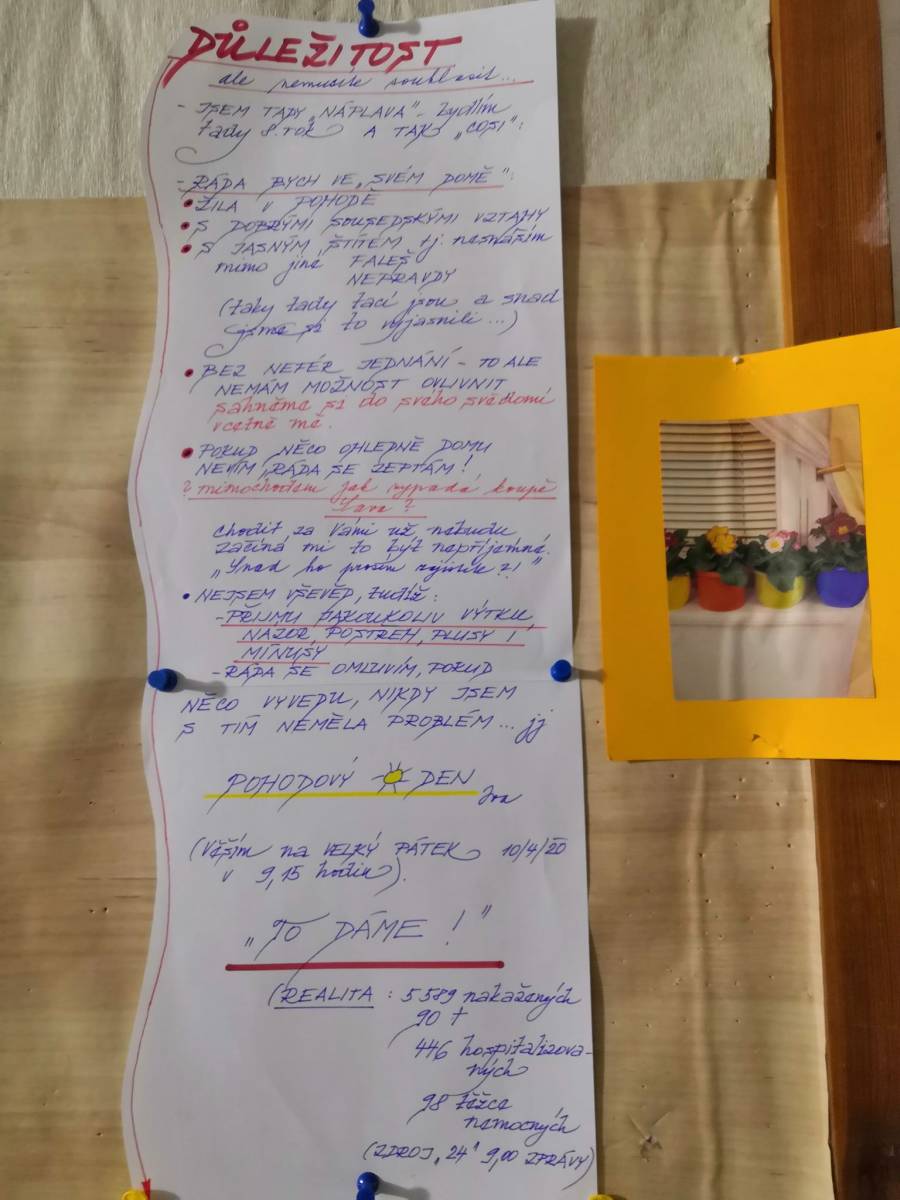 DŮLEŽITOST
ale nemusíte souhlasit...
- JSEM TADY „NÁPLAVA" - bydlím
tady 8. rok A TAK „COSI":
- RÁDA BYCH VE „SVÉM DOMĚ":
• ŽILA V POHODĚ
• S DOBRÝMI SOUSEDSKÝMI VZTAHY
• S JASNÝM ŠTÍTEM tj. nesnáším
mimo jiné FALEŠ
NEPRAVDY
(taky tady tací jsou a snad
jsme si to vyjasnili...)
• BEZ NEFÉR JEDNÁNÍ - TO ALE
NEMÁM MOŽNOST OVLIVNIT
sáhněme si do svého svědomí
včetně mě.
• POKUD NĚCO OHLEDNĚ DOMU
NEVÍM, RÁDA SE ZEPTÁM!
? mimochodem jak vypadá koupě
?
chodit za Vámi už nebudu
začíná mi to být nepříjemné.
„Snad ho prosím ?!"
• NEJSEM VŠEVĚD, tudíž:
- PŘIJMU JAKOUKOLIV VÝTKU,
NÁZOR, POSTŘEH, PLUSY I
MÍNUSY
- RÁDA SE OMLUVÍM, POKUD
NĚCO VYVEDU, NIKDY JSEM
S TÍM NEMĚLA PROBLÉM... jj
POHODOVÝ DEN
Iva
(Věším na VELKÝ PÁTEK 10/4/20
v 9,15 hodin).
„TO DÁME!"
(REALITA: 5 589 nakažených
90 †
446 hospitalizova-
ných
98 těžce
nemocných
(ZDROJ „24" 9,00 ZPRÁVY)